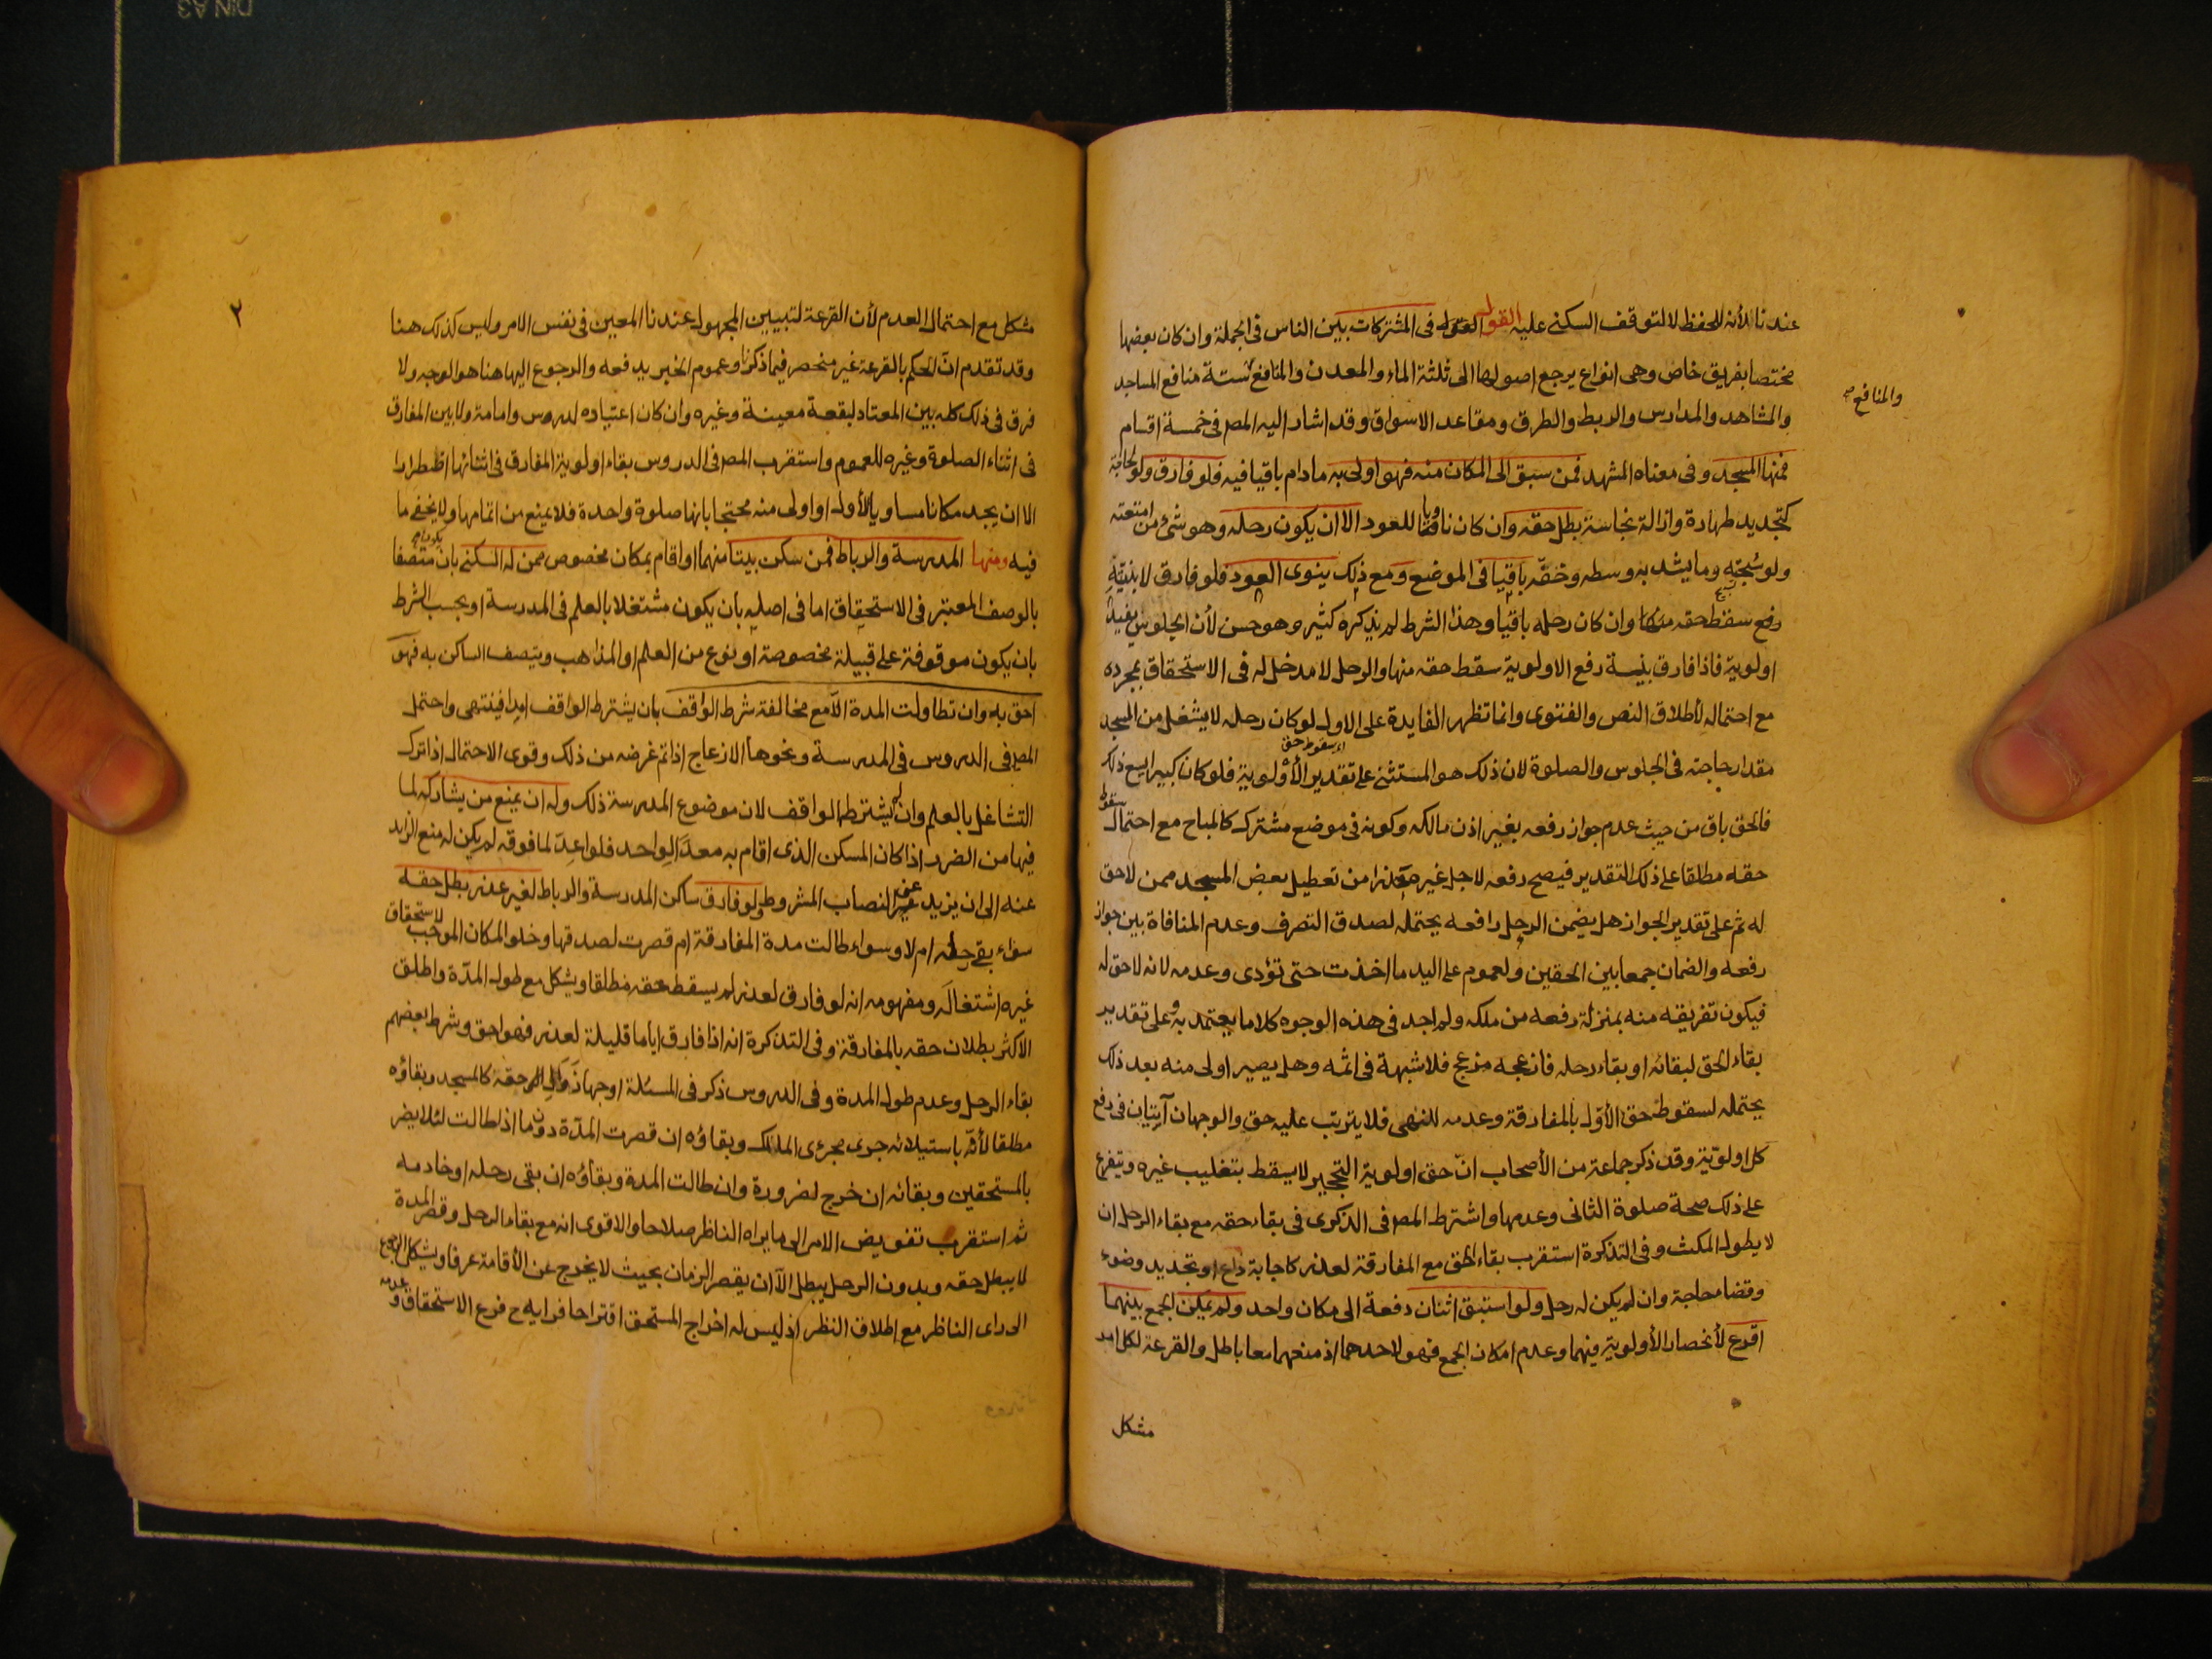 عندنا لأنه للحفظ لا لتوقف السكنى عليه القول القول فى المشتركات بين الناس فى الجملة وان كان بعضها
مختصا بفريق خاص وهى انواع يرجع اصولها الى ثلثة الماء والمعدن والمنافع ستة منافع المساجد
والمنافع صح
والمشاهد والمدارس والربط والطرق ومقاعد الاسواق وقد اشار اليه المص فى خمسة اقسام
فمنها المسجد وفى معناه المشهد فمن سبق الى المكان منه فهو اولى به مادام باقيا فيه فلو فارق ولو لحاجة
كتجديد طهارة وازالة نجاسة بطل حقه وان كان ناويا للعود الا ان يكون رحله وهو شىء من امتعته
ولو سُبحته وما يشد به وسطه وخفّه باقيا فى الموضع ومع ذلك ينوى العود فلو فارق لا بنيّته
رفع سقط حقه وان كان رحله باقيا وهذا الشرط لم يذكره كثير وهو حسن لأن الجلوس يفيد
اولوية فاذا فارق بنية رفع الاولوية سقط حقه منها والرحل لا مدخل له فى الاستحقاق بمجرده
مع احتماله لأطلاق النص والفتوى وانما تظهر الفايدة على الاول لو كان رحله لا يشغل من المسجد
مقدار حاجته فى الجلوس والصلوة لان ذلك هو المستثنى على تقدير الأولوية فلو كان كبيرا يسع ذلك
اى سقوط حق
فالحق باق من حيث عدم جواز رفعه بغير اذن مالكه وكونه فى موضع مشترك كالمباح مع احتمال سقوط
حقه مطلقا على ذلك التقدير فيصح رفعه لاجل غيره حذرا من تعطيل بعض المسجد ممن لا حق
له ثم على تقدير الجواز هل يضمن الرحل رافعه يحتمله لصدق التصرف وعدم المنافاة بين جواز
رفعه والضمان جمعا بين الحقين ولعموم على اليد ما اخذت حتى تؤدى وعدمه لانه لا حق له
فيكون تفريقه منه بمنزلة رفعه من ملكه ولم اجد فى هذه الوجوه كلاما يعتمد به وعلى تقدير
بقاء الحق لبقائه او بقاء رحله فازعجه مزعج فلا شبهة فى اثمه وهل يصير اولى منه بعد ذلك
يحتمله لسقوط حق الأوّل بالمفارقة وعدمه للنهى فلا يترتب عليه حق والوجهان آتيان فى رفع
كل اولويّة وقد ذكر جماعة من الأصحاب انّ حق اولوية التحجير لا يسقط بتغليب غيره ويتفرع
على ذلك صحة صلوة الثانى وعدمها واشترط المص فى الذكرى فى بقاء حقه مع بقاء الرحل ان
لا يطول المكث وفى التذكرة استقرب بقاء الحق مع المفارقة لعذر كاجابة داع او تجديد وضوء
وقضاء حاجة وان لم يكن له رحل ولو استبق اثنان دفعة الى مكان واحد ولم يمكن الجمع بينهما
اقرع لأنحصار الأولوية فيهما وعدم امكان الجمع فهو لاحدهما اذ منعهما معا باطل والقرعة لكل امر
مشكل
٢
مشكل مع احتمال العدم لأن القرعة لتبيين المجهول عندنا المعين فى نفس الامر وليس كذلك هنا
وقد تقدم انّ الحكم بالقرعة غير منحصر فيما ذكرنا وعموم الخبر يدفعه والرجوع اليها هنا هو الوجه ولا
فرق فى ذلك كله بين المعتاد لبقعة معينة وغيره وان كان اعتياده لدروس وامامة ولا بين المفارق
فى اثناء الصلوة وغيره للعموم واستقرب المص فى الدروس بقاء اولوية المفارق فى اثنائها اضطرارا
الا ان يجد مكانا مساويا للأول او اولى منه محتجا بانها صلوة واحدة فلا يمنع من اتمامها ولا يخفى ما
فيه ومنها المدرسة والرباط فمن سكن بيتا منهما او اقام بمكان مخصوص ممن له السكنى بان يكون متصفا
بالوصف المعتبر فى الاستحقاق اما فى اصله بان يكون مشتغلا بالعلم فى المدرسة او بحسب الشرط
بان يكون موقوفة على قبيلة مخصوصة او نوع من العلم او المذاهب ويتصف الساكن به فهو
احق به وان تطاولت المدة الّا مع مخالفة شرط الوقف بان يشترط الواقف امدا فينتهى واحتمل
المص فى الدروس فى المدرسة ونحوها الازعاج اذا تم غرضه من ذلك وقوى الاحتمال اذا ترك
التشاغل بالعلم وان لم يشترط الواقف لان موضوع المدرسة ذلك وله ان يمنع من يشاركه لما
فيها من الضرر اذا كان المسكن الذى اقام به معدّا لواحد فلو اعدّ لما فوقه لم يكن له منع الزايد
عنه الى ان يزيد عن النصاب المشروط ولو فارق ساكن المدرسة والرباط لغير عذر بطل حقه
سواء بقى رحله ام لا وسواء طالت مدة المفارقة ام قصرت لصدقها وخلو المكان الموجب لاستحقاق
غيره اشتغاله ومفهومه انه لو فارق لعذر لم يسقط حقه مطلقا ويشكل مع طول المدّة واطلق
الاكثر بطلان حقه بالمفارقة وفى التذكرة انه اذا فارق اياما قليلة لعذر فهو احق وشرط بعضهم
بقاء الرحل وعدم طول المدة وفى الدروس ذكر فى المسئلة اوجها زوال حقه كالمسجد وبقاؤه
مطلقا لأنّه باستيلائه جرى مجرى المالك وبقاؤه ان قصرت المدّة دون ما اذا طالت لئلا يضر
بالمستحقين وبقائه ان خرج لضرورة وان طالت المدة وبقاؤه ان بقى رحله او خادمه
ثم استقرب تفويض الامر الى ما يراه الناظر صلاحا والاقوى انه مع بقاء الرحل وقصر المدة
لا يبطل حقه وبدون الرحل يبطل الّا ان يقصر الزمان بحيث لا يخرج عن الأقامة عرفا ويشكل الرجوع
الى راى الناظر مع اطلاق النظر اذ ليس له اخراج المستحق اقتراحا فرايه ح فرع الاستحقاق وعدمه